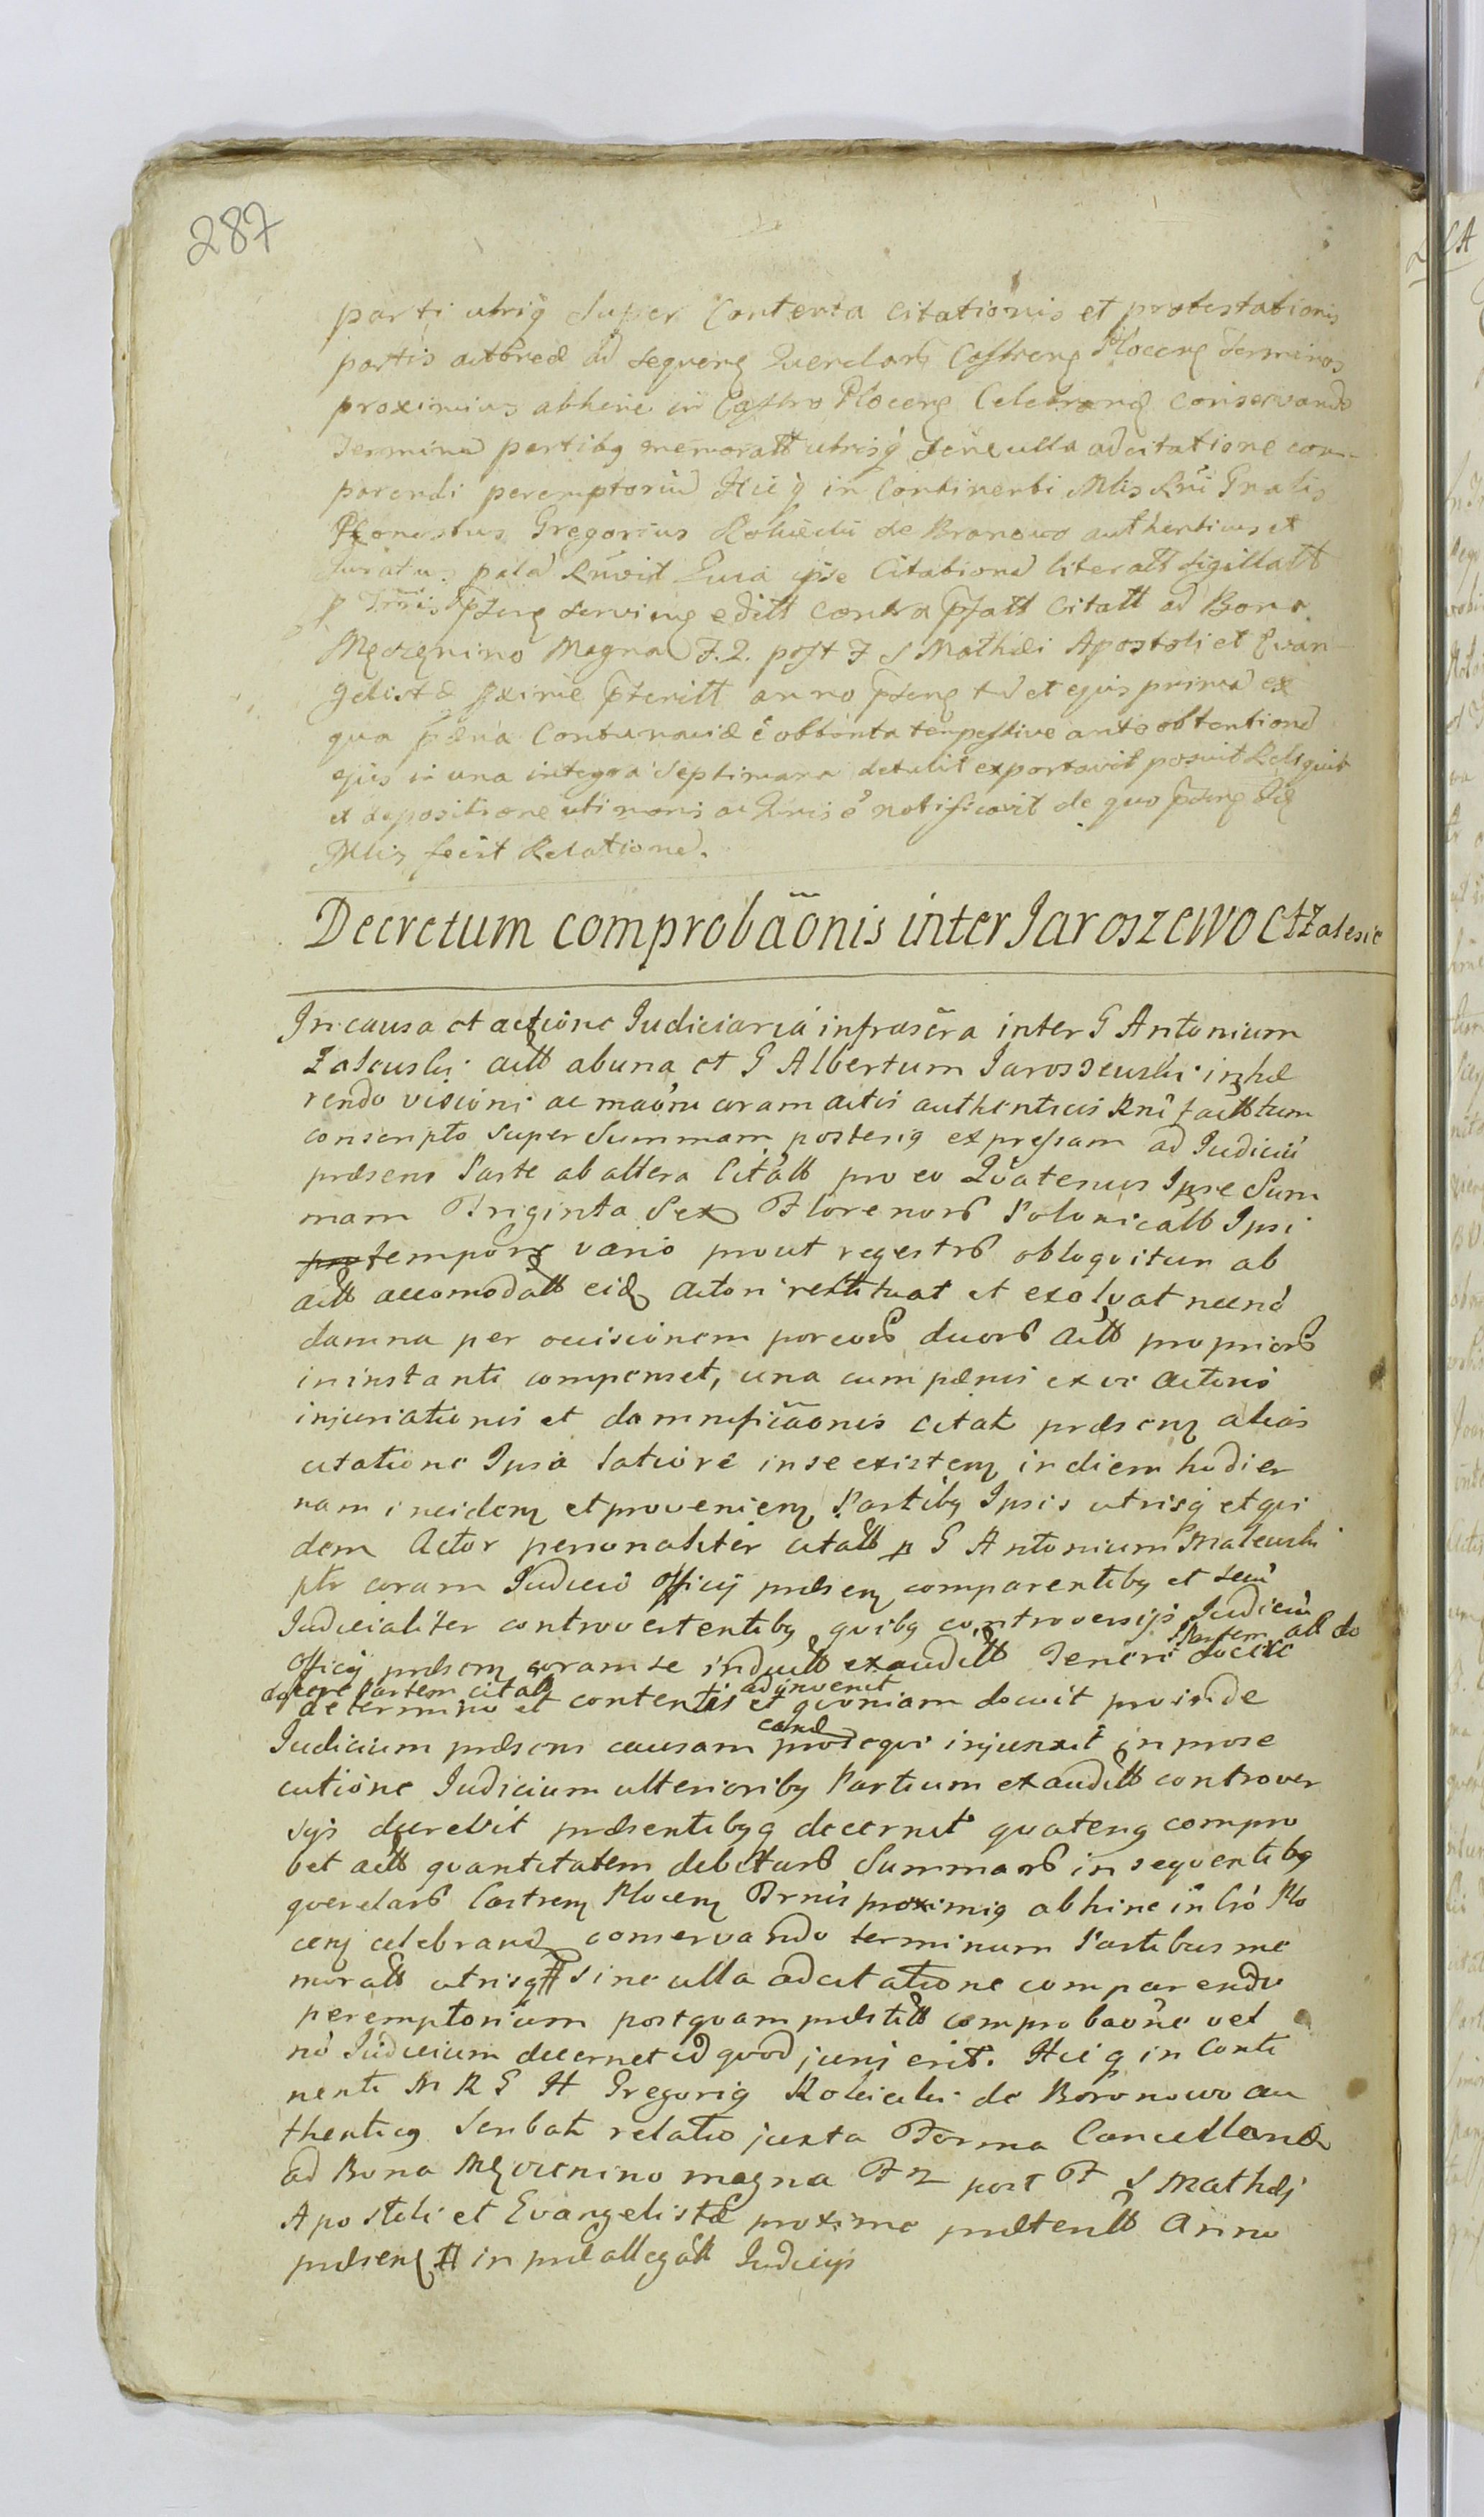 287
parti utriq̃ Super Contenta Citationis et protestationis
partis actoreæ ad sequenꝫ Querelarꝫ Castrenꝫ Plocenꝫ Terminos
proximius abhinc in Castro Plocenꝫ Celebranꝫ conservando
Terminũ partibꝫ memoratt utrisq̃ sine ulla adcitatione com-
parendi peremptoriũ Hicq̃ in Continenti Mlis Rni Gnalis
Honestus Gregorius de Bronowo authenticus et
Juratus palã Rnvit Quia ipse Citationẽ literatt sigillatt
contra citatt ad Bona
Męczenino Magna F. 2. post F S Mathæi Apostoli et Evan-
gelistæ pxime pteritt anno et ejus primã ex
qua pæna Contumaciæ ẽ obtenta tempestive ante obtentionẽ
ejus in una integra Septimana detulit exportavit posuit Reliquit
et depositione uti moris ac Juris ẽ notificavit de quo
Mlis fecit Relationẽ.
Decretum comprobãonis inter Jaroszewo et Zalesie
In causa et actione Judiciaria infrascra inter G Antonium
Zalewski actt ab una et G Albertum Jaroszewski inhæ
rendo visioni ac coram actis authenticis Rni
conscripto super Summam posterig expressam ad Judiciũ
præsens Parte ab altera Citatt pro eo Quatenus Ipse Sum
mam Triginta Sex Florenorꝫ Polonicall Ipsi
pro tempore vario prout regestrꝫ obloquitur ab
actt accomodatt eidꝫ actori restituat et exolvat necnõ
damna per occisionem porcorꝫ duorꝫ actt propriorꝫ
in instanti compenset, una cum pænis ex vi actoris
injuriationis et damnificãonis citat præsenꝫ alias
citatione Ipsa latiore in se existenꝫ in diem hodier
nam incidenꝫ et provenienꝫ Partibꝫ Ipsis utrisq̃ et qui
dem Actor personaliter citatt ꝑ G Antonium Malewski
ptr coram Judicio Officij præsenꝫ comparentibꝫ et secũ
Judicialiter controvertentibꝫ quibꝫ controversijs Judiciũ
Officij præsenꝫ coram se inductt exauditt Teneri Partem act do
docere Partem citatt
de termino et contentis et adinvenit quoniam docuit proinde
Judicium præsens causam eand prosequi injunxit in prose
cutione Judicium ulterioribꝫ Partium exauditt controver
sijs decrevit præsentibꝫq decernit quatenꝫ compro
bet actt quantitatem debitarꝫ Summarꝫ in sequentibꝫ
querelarꝫ Castrenꝫ Plocenꝫ Trnis proximig abhinc in Crõ Plo
cenꝫ celebranꝫ conservando terminum Partibus me
moratt utrisq̃ sine ulla adcitatione comparendi
peremptorium postquam præstitt comprobãone vel
nõ Judicium decernet id quod juris erit. Hicq̃ in Conti
nenti M R G H Gregorig de Boronowo au
thenticꝫ Scribat relatio juxta Forma Cancellariæ
ad Bona Męczenino magna F 2 post F S Mathæj
Apostoli et Evangelistæ proxime præteritt Anno
præsenꝫ in præallegatt Judicijs